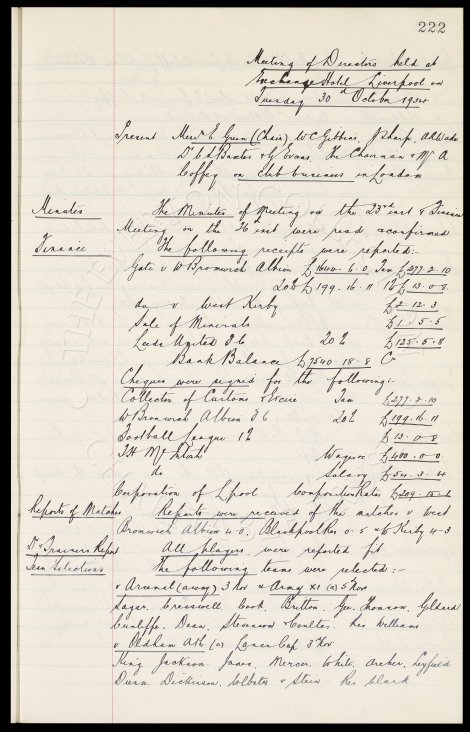 222
Meeting of Directors held at
Exchange Hotel Liverpool on
Tuesday 30th October 1934
Present Messrs E Green (Chair) W C Gibbins, J Sharp, A Coffey
Dr C S Baxter & G Evans. The Chairman & Mr A
Coffey on club business in London
Minutes The Minutes of Meeting on the 23rd inst & Finance
Meeting on the 26th inst were read & confirmed
Finance The following receipts were reported:-
Gate v W Bromwich Albion £1640. 6. 0 Tax £277. 2. 10
20% £199. 16. 11 1% £13. 0. 8
do v West Kirby £2. 12. 3
Sale of Minerals £1. 5. 5
Leeds United F C 20% £125. 5. 8
Bank Balance £7540. 18. 8 Cr
Cheques were signed for the following:-
Collector of Customs & Excise Tax £277. 2. 10
W Bromwich Albion F C 20% £199. 16. 11
Football League 1% £13. 0. 8
T H McIntosh Wages £400. 0. 0
do Salary £54. 3. 4
Corporation of L'pool Composition Rates £209. 15. 1
Reports of Matches Reports were received of the matches v West
Bromwich Albion 4-0, Blackpool 0-5 & W Kirby 4-3
Dr & Trainers Report All players were reported fit
Team Selections The following teams were selected:-
v Arsenal (away) 3 Nov & Army XI (a) 5th Nov
Sagar, Cresswell Cook, Britton, Gee Thomson, Geldard
Cunliffe, Dean, Stevenson & Coulter. Res Williams
v Oldham Ath. (a) Lancs Cup 3 Nov
King Jackson. Jones, Mercer White. Archer, Leyfield
Dunn. Dickinson, Webster & Stein. Res Clark